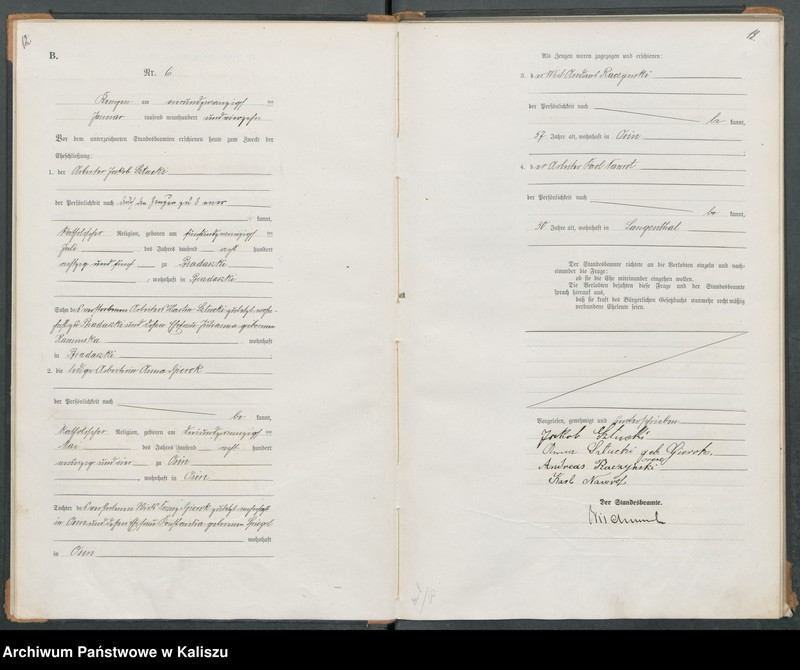 12.
B.
Nr. 6
am vierundzwanzigsten
Januar tausend neunhundert undvierzehn
Vor dem unterzeichneten Standesbeamten erschienen heute zum Zweck der
Eheschließung:
1. der Arbeiter Jakob Szlucki
der Persönlichkeit nach
kannt,
katholischer Religion, geboren am fünfundzwanzigsten
Juli des Jahres tausend acht hundert
achtzig und fünf zu Biadaszki
, wohnhaft in Biadaszki
Sohn des verstorbenen Arbeiters Martin Szlucki zuletzt wohn-
haft zu Biadaszki und dessen Ehefrau Julianna geborenen
Kaminska wohnhaft
in Biadaszki
2. die ledige Arbeiterin Anna Gierok
der Persönlichkeit nach
be kannt,
katholischer Religion, geboren am dreiundzwanzigsten
Mai des Jahres tausend acht hundert
undvier zu Osin
, wohnhaft in Osin
Tochter des verstorbenen Wirts Gierok zuletzt wohnhaft
in Osin und dessen Ehefrau Konstantia geborenen Spiegel
wohnhaft
in Osin
Als Zeugen waren zugezogen und erschienen:
3. der Wirt Andreas Raczynski
der Persönlichkeit nach
be kannt,
57 Jahre alt, wohnhaft in Osin
4. der Arbeiter Karl Nawrot
der Persönlichkeit nach
be kannt,
30 Jahre alt, wohnhaft in Langenthal
Der Standesbeamte richtete an die Verlobten einzeln und nach-
einander die Frage:
ob sie die Ehe miteinander eingehen wollen.
Die Verlobten bejahten diese Frage und der Standesbeamte
sprach hierauf aus,
daß sie kraft des Bürgerlichen Gesetzbuchs nunmehr rechtmäßig
verbundene Eheleute seien.
Vorgelesen, genehmigt und unterschrieben
Jakob Szlucki
Anna Szlucki geb. Gierok.
Andreas Raczyński
Karl Nawrot
Der Standesbeamte.
Archiwum Państwowe w Kaliszu